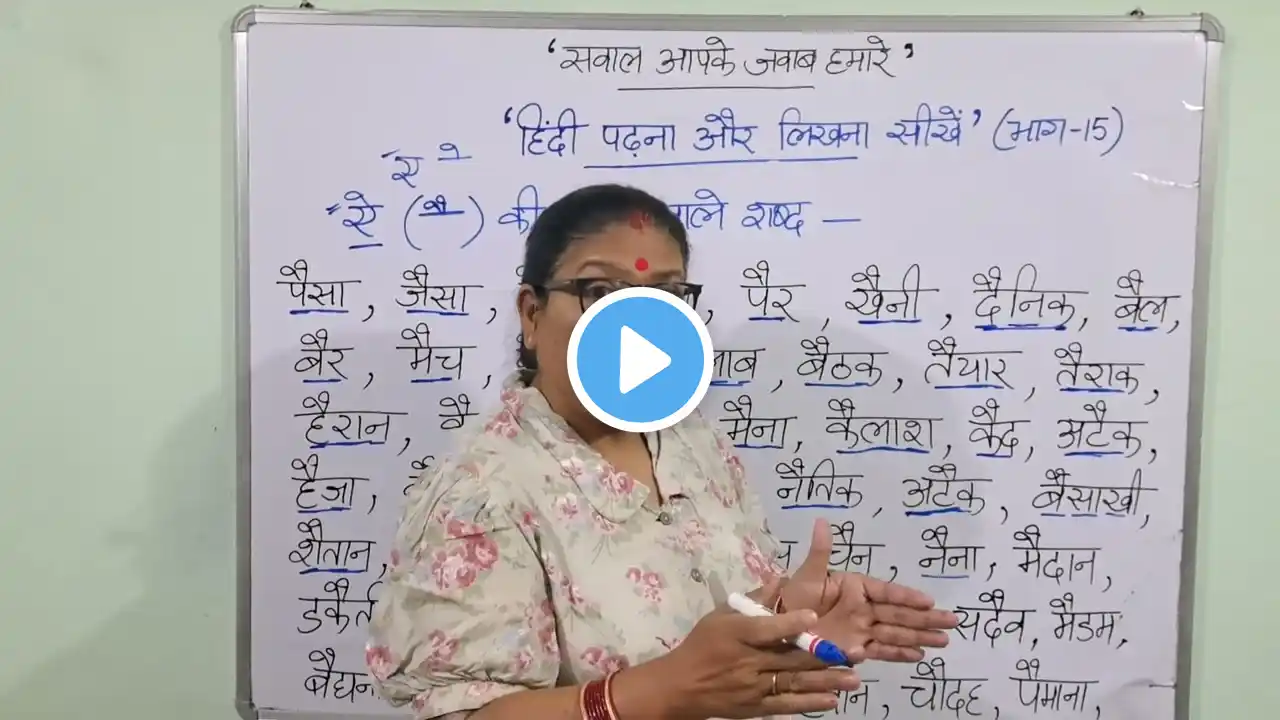 ‘सवाल आपके जवाब हमारे’
‘हिंदी पढ़ना और लिखना सीखें’ (भाग-15)
ए े
ऐ (ै) की वाले शब्द —
पैसा, जैसा, पैर, खैनी, दैनिक, बैल,
बैर, मैच, बैठक, तैयार, तैराक,
हैरान, मैना, कैलाश, कैद, अटैक,
हैजा, नैतिक, अटैक, बैसाखी,
शैतान, चैन, नैना, मैदान,
सदैव, मैडम,
चौदह, पैमाना,